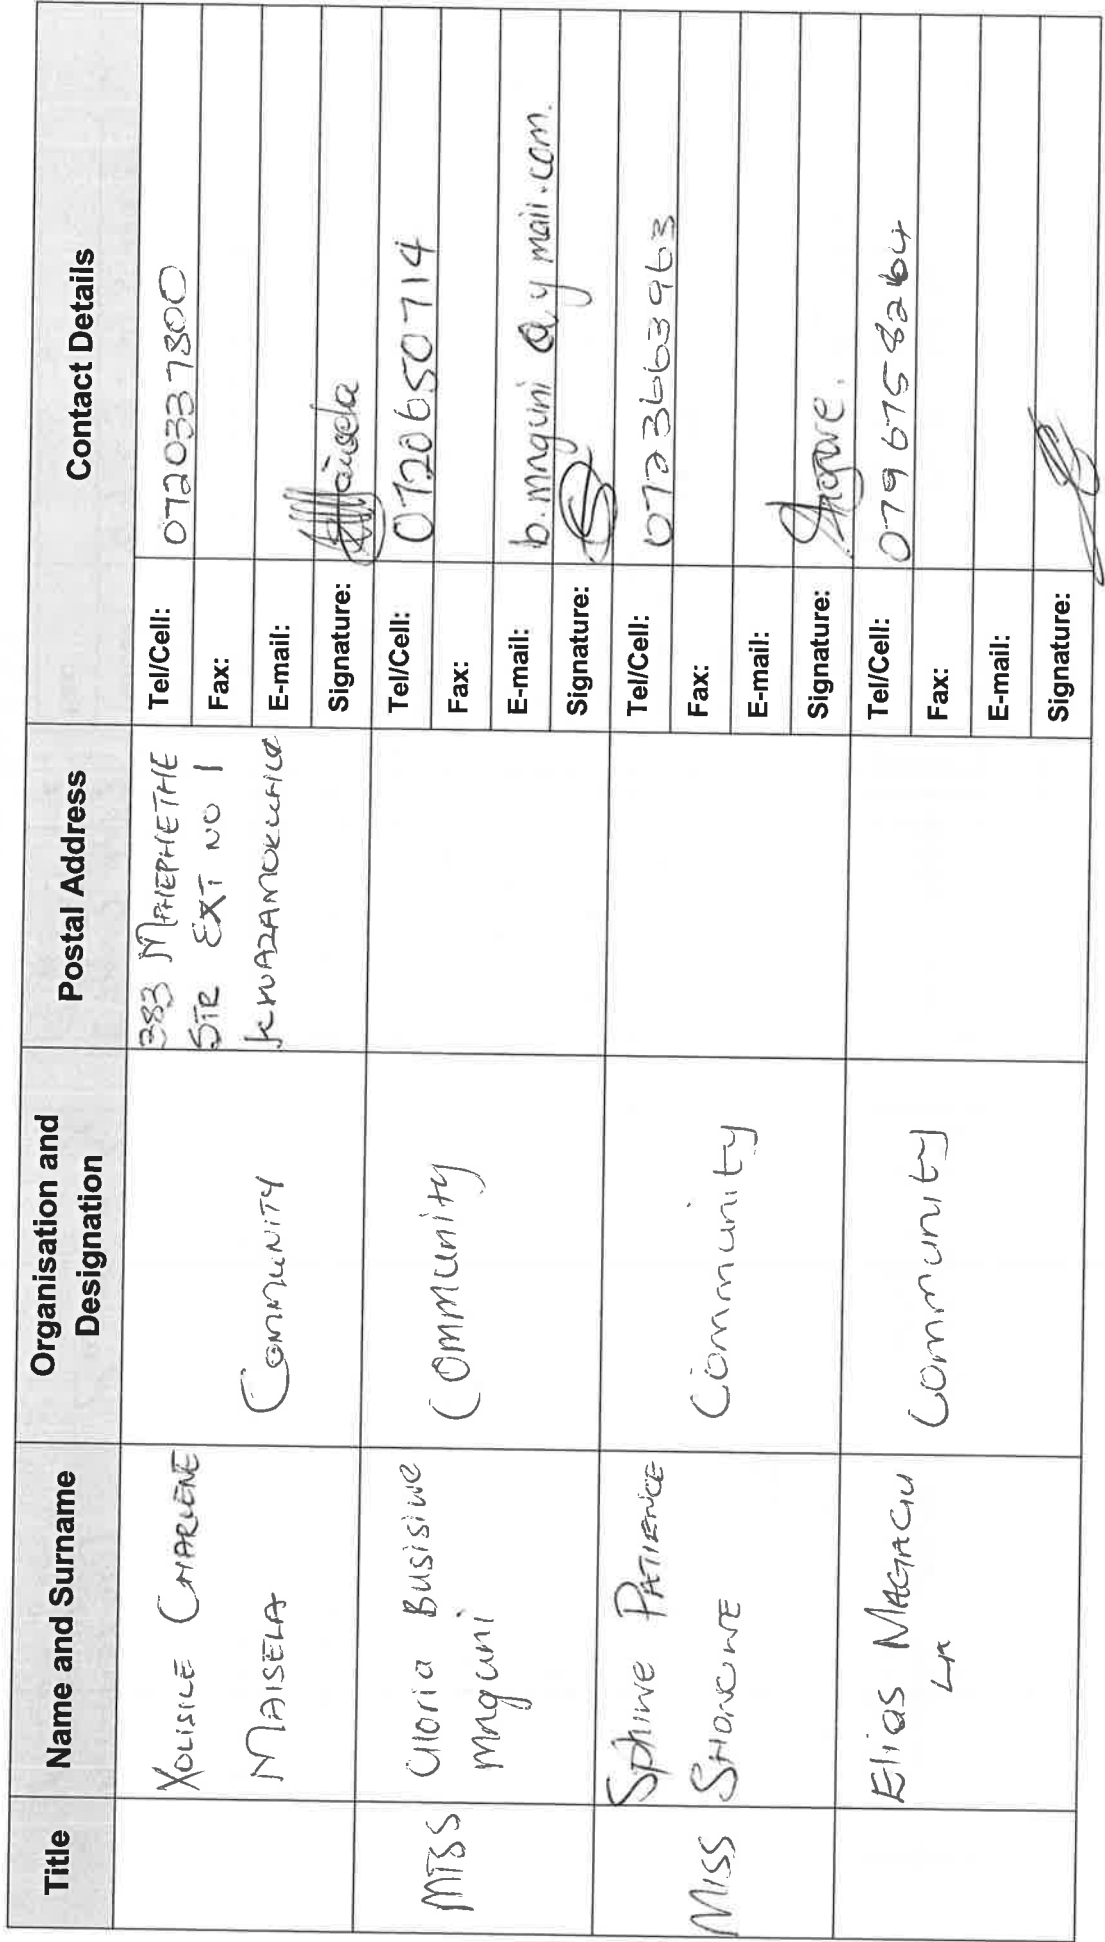 Title
Name and Surname
Organisation and
Designation
Postal Address
Contact Details
XOLISILE CHARLENE
MAISELA
COMMUNITY
383 MPHEPHETHE
STR EXT NO 1
Tel/Cell: 0720337800
Fax:
E-mail:
Signature: Maisela
MISS
Gloria Busisiwe
mnguni
Community
Tel/Cell: 0720650714
Fax:
E-mail: b.mnguni@ymail.com.
Signature:
MISS
Sphiwe PATIENCE
SHONGWE
Community
Tel/Cell: 0723663963
Fax:
E-mail:
Signature:
Elias MAGAGU
LA
Community
Tel/Cell: 0796758264
Fax:
E-mail:
Signature: